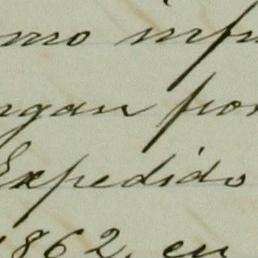 mo infr
ngan por
Expedido
1862, en